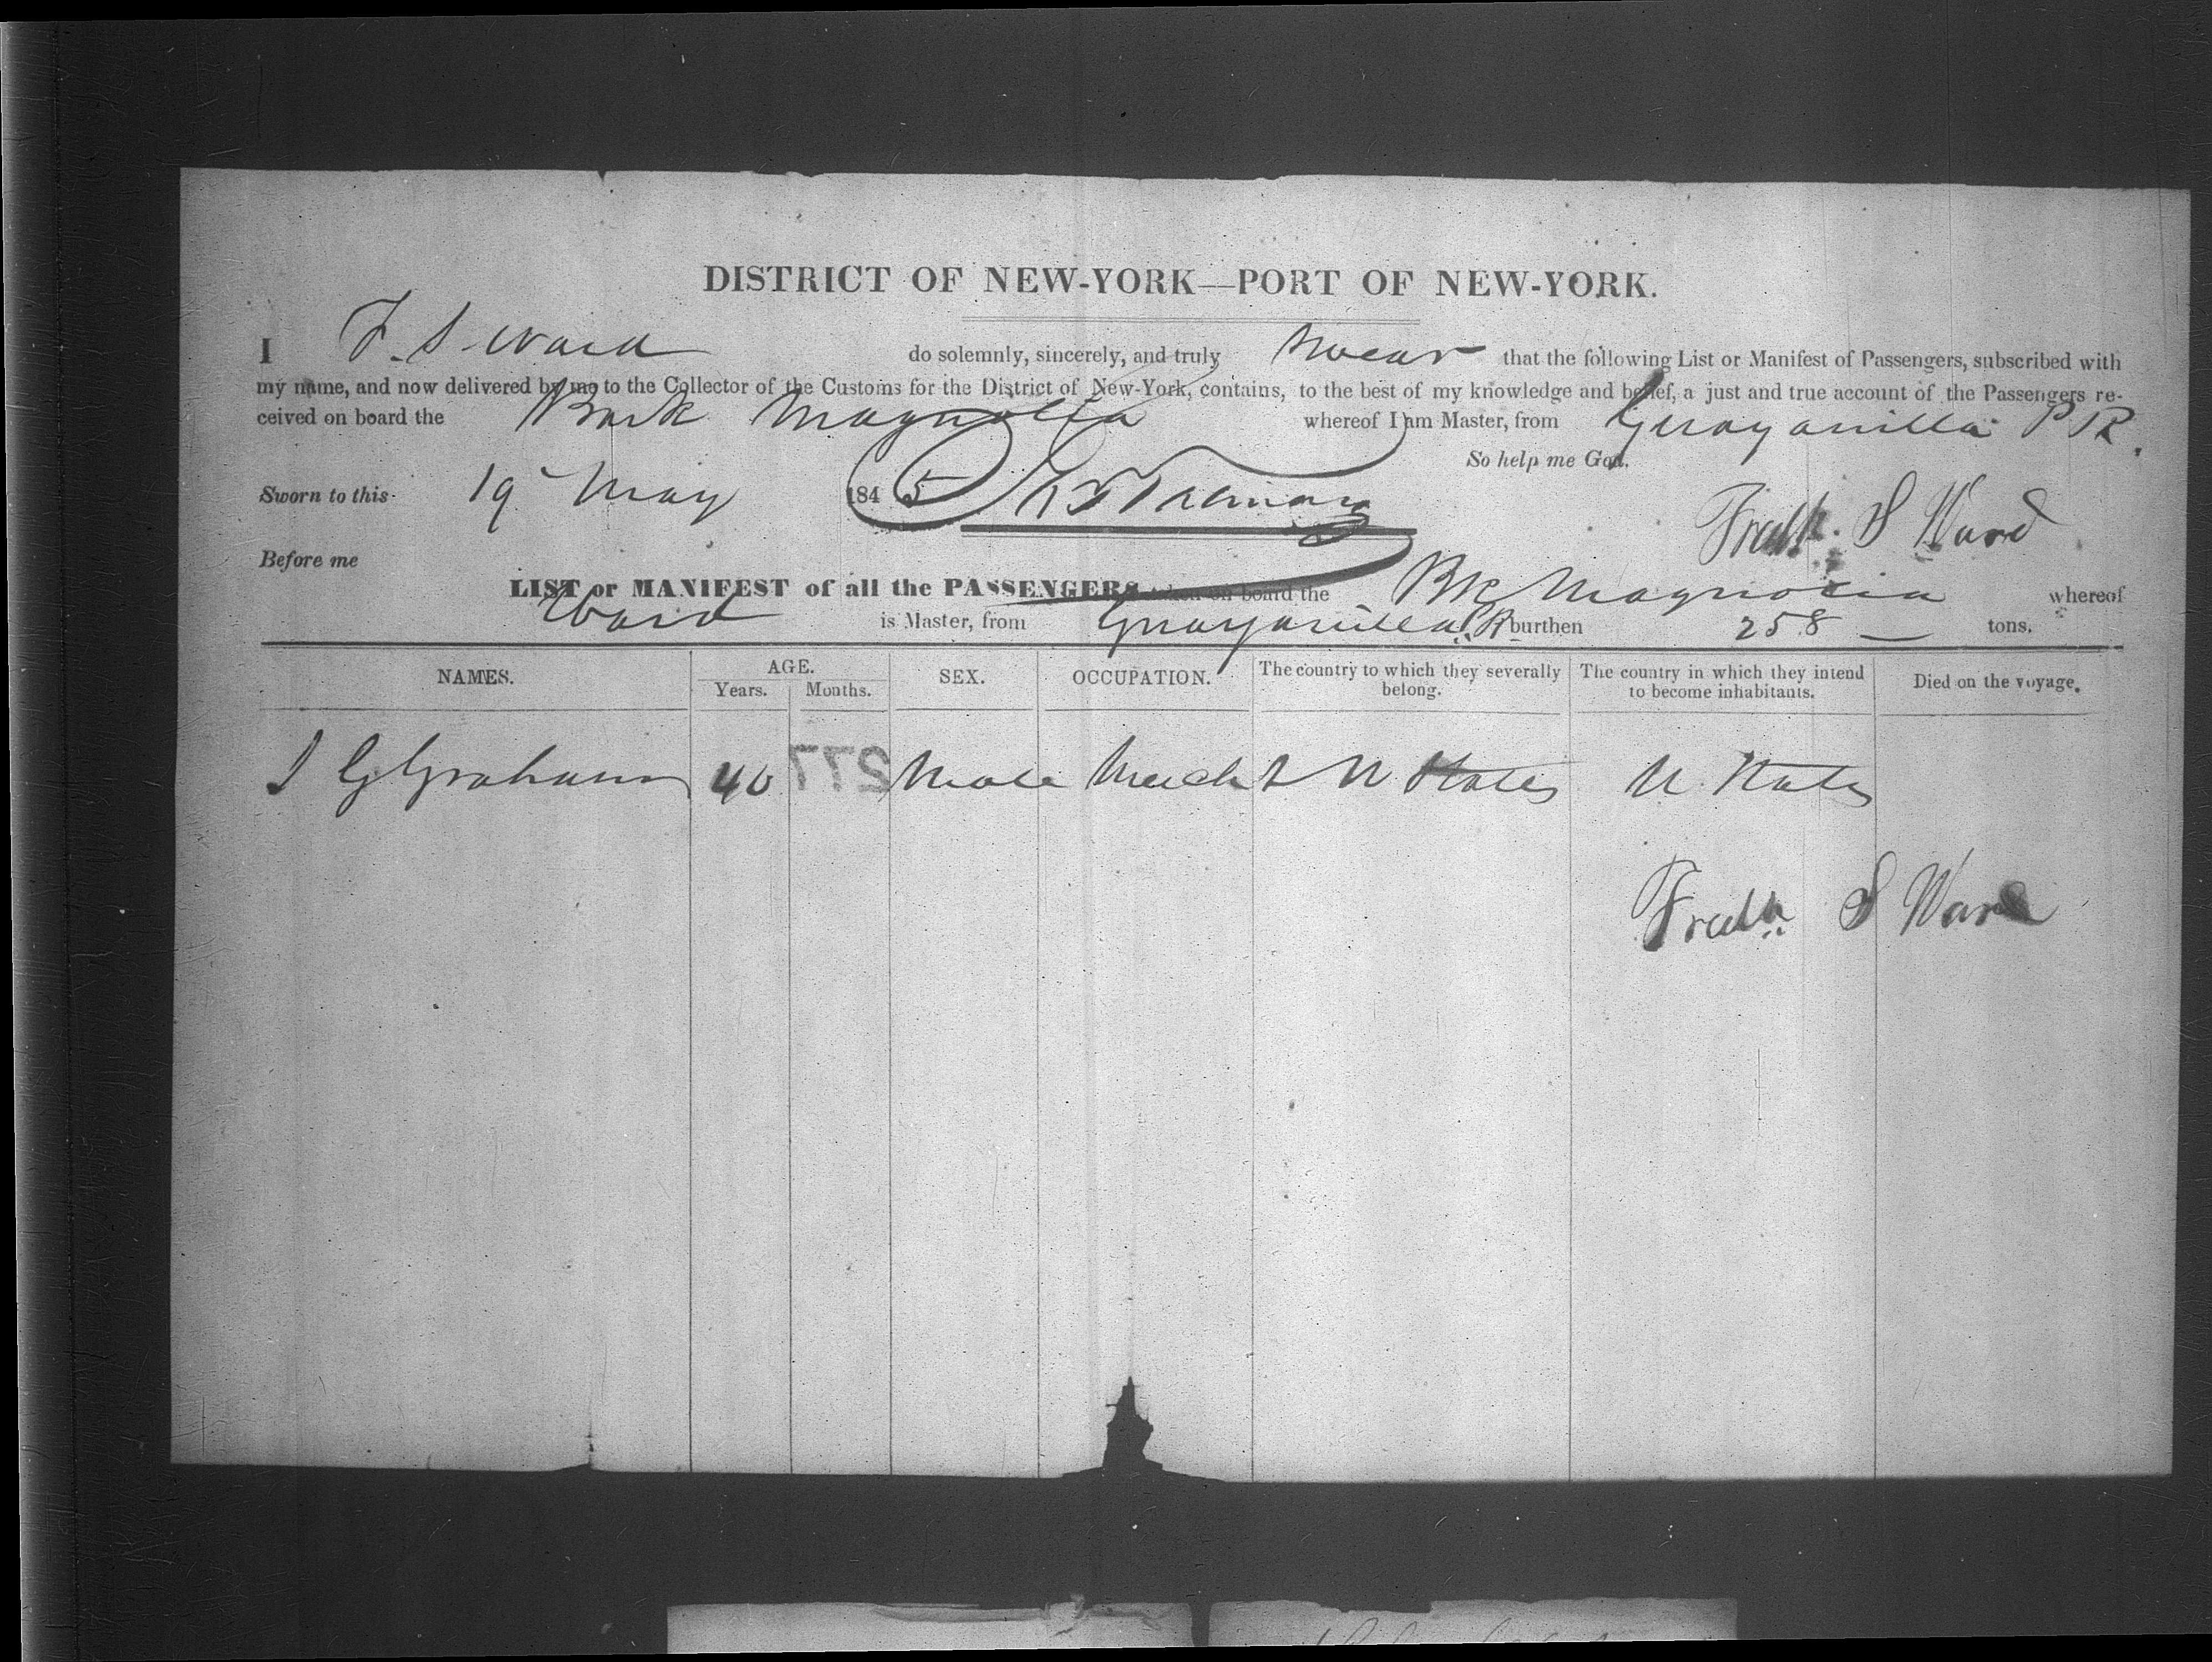 DISTRICT OF NEW-YORK—PORT OF NEW-YORK.
I F. S. Ward do solemnly, sincerely, and truly swear that the following List or Manifest of Passengers, subscribed with
my name, and now delivered by me to the Collector of the Customs for the District of New-York, contains, to the best of my knowledge and belief, a just and true account of the Passengers re-
ceived on board the Bark Magnolia whereof I am Master, from Guayanilla P R.
So help me God.
Sworn to this 19 May 1845
Fredk. S Ward
Before me
LIST or MANIFEST of all the PASSENGERS taken on board the Bk Magnolia whereof
Ward is Master, from Guayanilla P.R burthen 258 tons.
NAMES. AGE. SEX. OCCUPATION. The country to which they severally belong. The country in which they intend to become inhabitants. Died on the voyage.
Years. Months.
G Graham 40 277 Male Mercht U States U. States
Fredk. S Ward